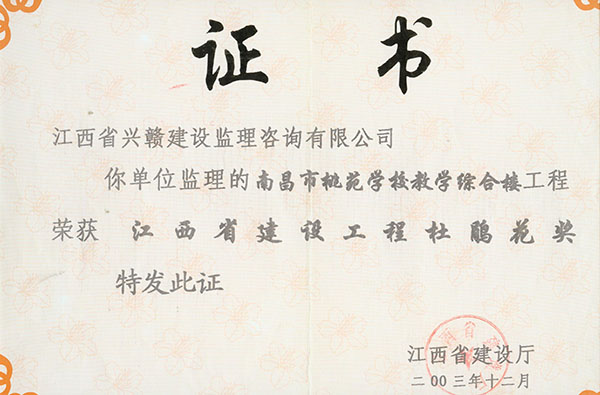 证 书
江西省兴赣建设监理咨询有限公司
你单位监理的南昌市桃苑学校教学综合楼工程
荣获 江西省建设工程杜鹃花奖
特发此证
江西省建设厅
二00三年十二月